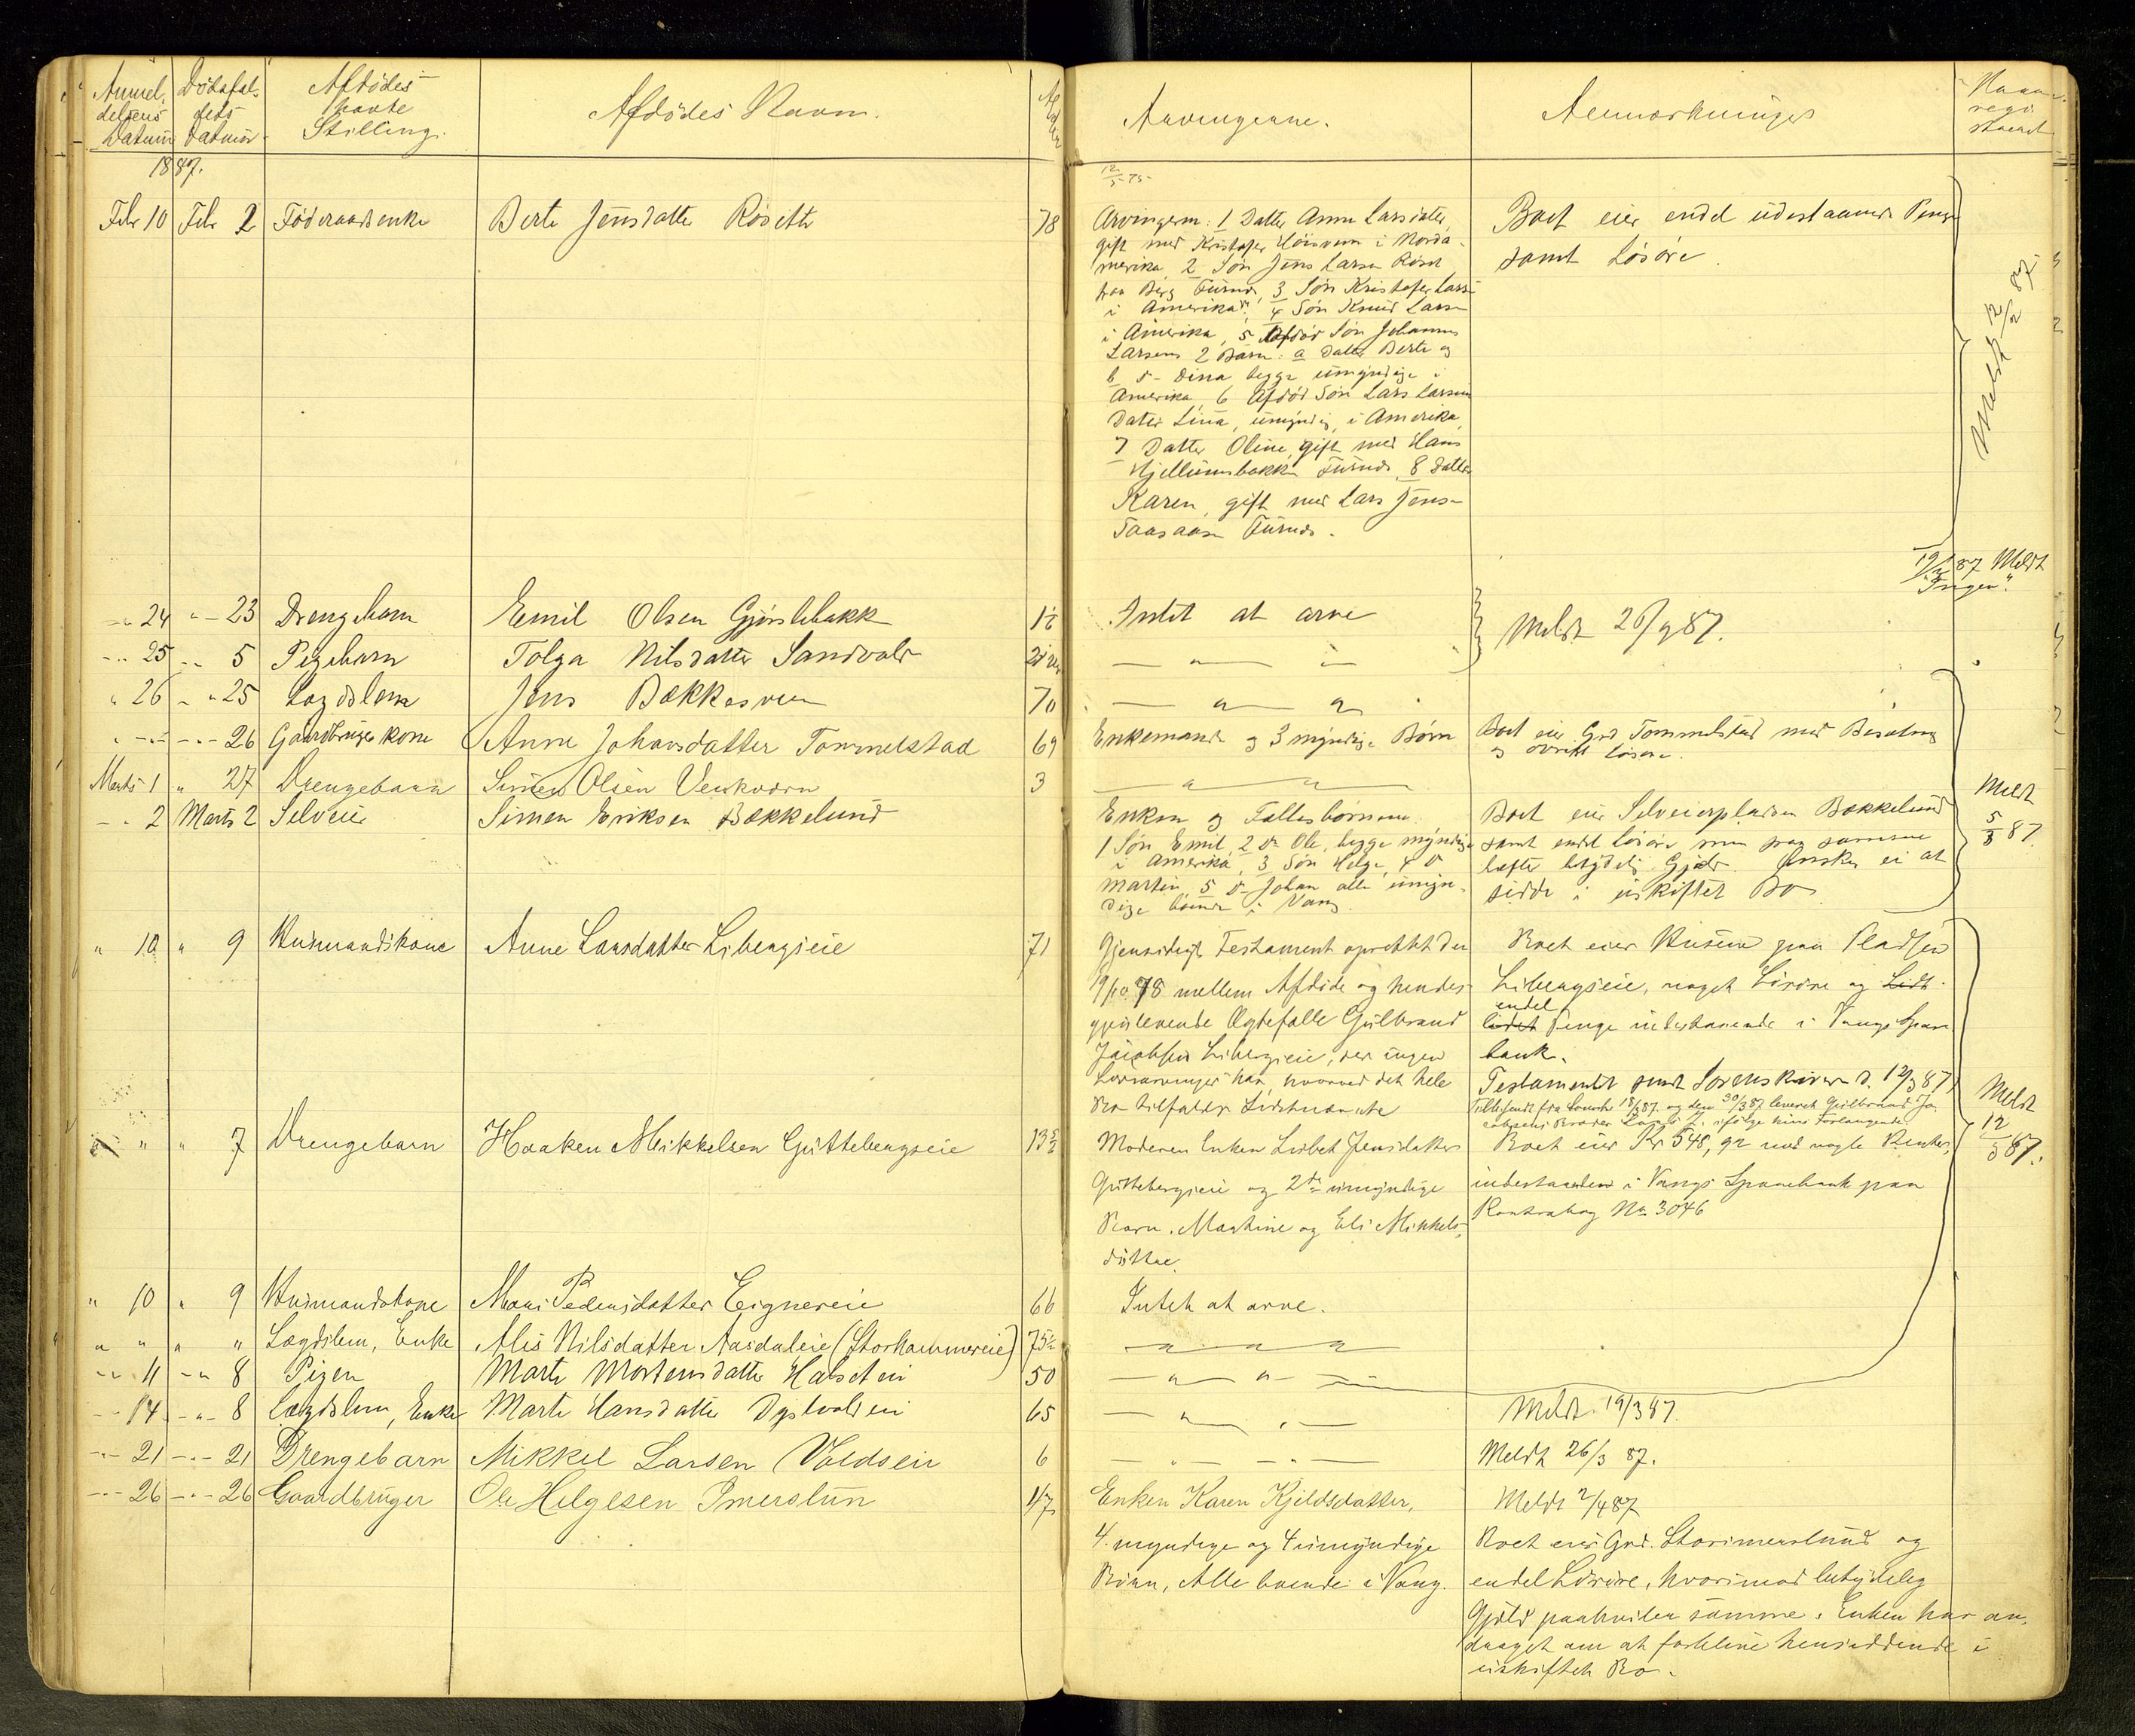 Anmel- Dödsfal- Afdödes
delsens dets havte Afdödes Navn. Arvingerne. Anmærkninger
Datum Datum Stilling.
1887.
12/5 75
Febr 10 Febr 2 Föderaadsenke Berte Jensdatter Rösettr 78 Arvingern: 1 Datter Anne Larsdatter, Boet eier endel udestaaende Penge
gift med Kristofer i Norda- samt Lösöre.
merika, 2 Sön Jens Larsen Röset
paa Berg Furnds, 3 Sön Kristofer Larsn
i Amerika, 4 Sön Knud Larsn
i Amerika, 5 Afdöd Sön Johannes
Larsens 2 Börn: a Datter Berte og
b d- Dina begge umyndige i
Amerika, 6 Afdöd Sön Lars Larsens
Datter Lina, umyndig, i Amerika,
7 Datter Oline, gift med Hans
Hjellumsbakkn Furnds, 8 Datter
Karen, gift med Lars Jens-
Taasaasn Furnds.
Meldt 12/2 87.
19/2 87 Meldt
"Ingen".
" 24 " 23 Drengebarn Emil Olsen Gjörslebakk 1½ Intet at arve Meldt 26/2 87.
" 25 " 5 Pigebarn Tolga Nilsdatter Sandvold — " —
" 26 " 25 Lægdslem Jens Bækkesveen 70 — " "
" — " 26 Gaardbruger kone Anne Johansdatter Tommelstad 69 Enkemand og 3 myndige Börn Boet eier Grd Tommelstad med Besætning
og Lösöre.
Marts 1 " 27 Drengebarn Simen Olsen Venkvern 3 — " — " —
" 2 Marts 2 Selveier Simen Eriksen Bækkelund Enken og Fællesbörnene Boet eier Selveierpladsen Bækkelund
1 Sön Emil, 2 d- Ole, begge myndige samt endel lösöre, men paa samme
i Amerika, 3 Sön Helge, 4 d- hefter betydelig Gjæld. Önsker ei at
Martin, 5 d- Johan alle umyn- sidde i uskiftet Bo
dige boende i Vang.
Meldt
5/3 87.
" 10 " 9 Husmandskone Anne Larsdatter Libergseie 71 Gjensidigt Testament oprettet den Boet eier Husene paa Pladsen
9/10 78 mellem Afdöde og hendes Libergseie, noget Lösöre og Lidt
gjenlevende Ægtefælle Gulbrand endel lidet Penge indestaaende i Vangs Spare
Jacobsen Libergseie, der ingen bank.
Livsarvinger har, hvorved det hele Testamentet sendt Sorenskriveren d. 12/3 87,
Bo tilfalder Sidstnævnte Tilbagesendt fra 18/3 87. og den 30/3 87 leveret Gulbrand Ja-
" " " 7 Drengebarn Haaken Mikkelsen Guttebergseie 13½ Moderen Enken Lisbet Jensdatter Boet eier Kr 548, 92 med nogle Renter,
Guttebergseie og 2de umyndige indestaaende i Vangs Sparebank paa
Barn, Martine og Eli Mikkels- Kontrabog No 3046
döttre.
Meldt
12/3 87.
" 10 " 9 Husmandskone Mari Pedersdatter Eignereie 66 Intet at arve.
" " " " Lægdslem, Enke Alis Nilsdatter Aasdaleie (Storhammereie) 75½ — " — " — "
" 11 " 8 Pigen Marte Mortensdatter Halseteie 50 — " — " —
" 14 " 8 Lægdslem, Enke Marte Hansdatter Dystvoldeie 65 — " — " — Meldt 19/3 87.
" 21 " 21 Drengebarn Mikkel Larsen Voldseie 6 — " — " — Meldt 26/3 87.
" 26 " 26 Gaardbruger Ole Helgesen Imerslun 47 Enken Karen Kjeldsdatter, Meldt 2/4 87
4 myndige og 4 umyndige Boet eier Grd. Storimerslund og
Börn, Alle boende i Vang. endel Lösöre, hvorimod betydelig
Gjæld paahviler samme. Enken har an-
draget om at forblive hensiddende i
uskiftet Bo.